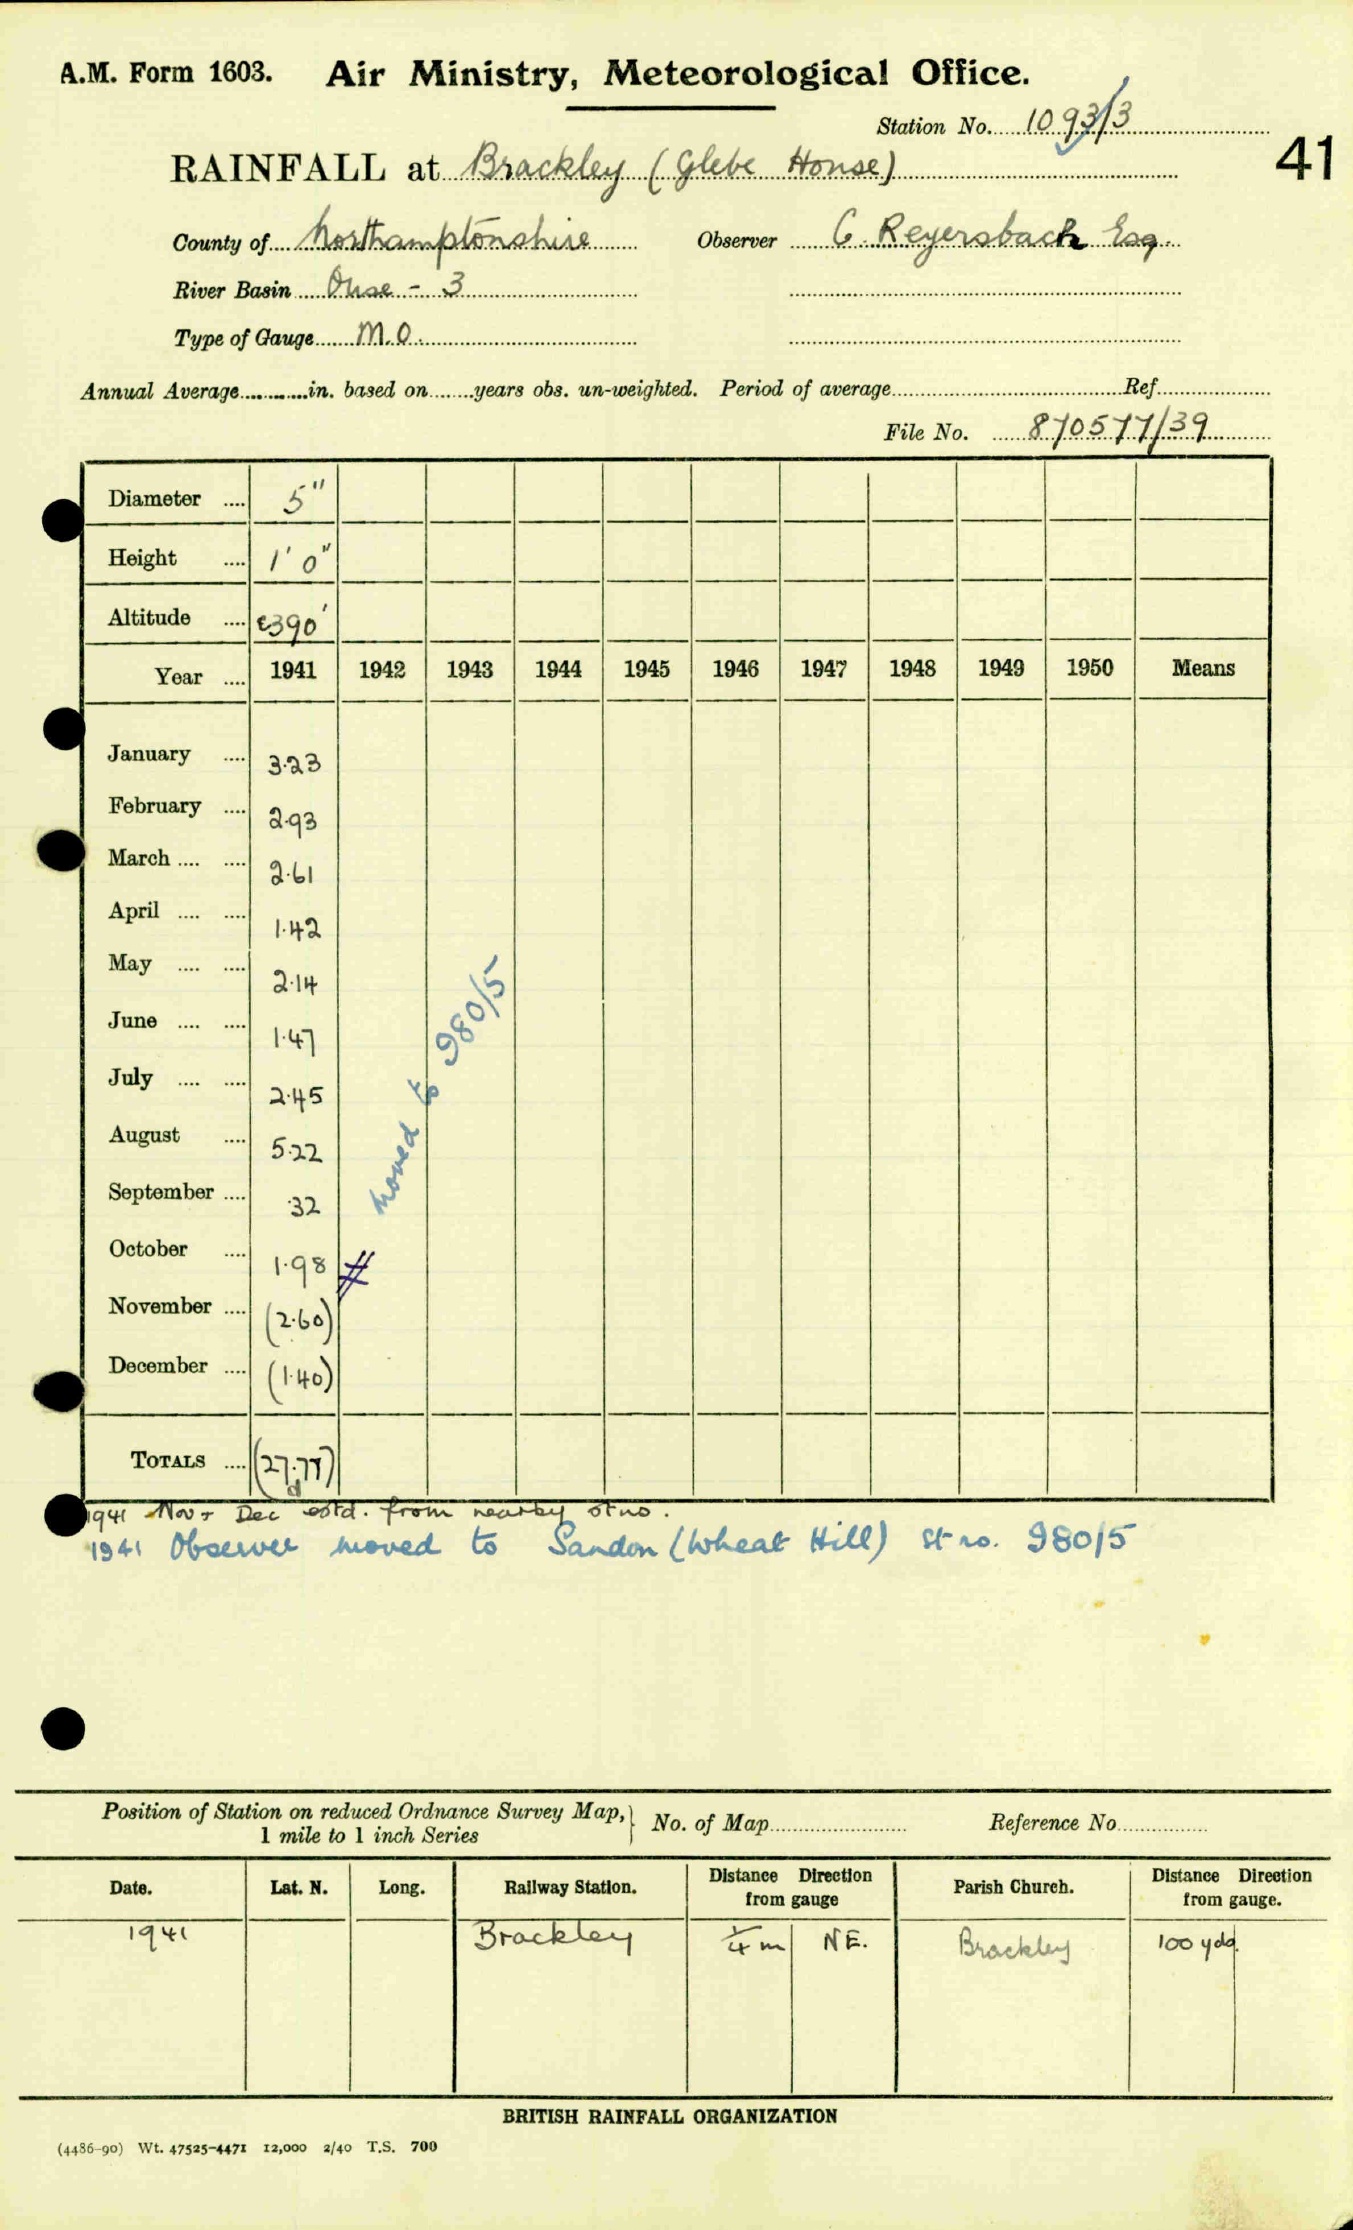 A.M. Form 1603. Air Ministry, Meteorological Office.
Station No. 1093/3
41
RAINFALL at Brackley (Glebe House)
County of Northamptonshire Observer C. Reyersbach Esq.
River Basin Ouse - 3
Type of Gauge M.O.
Annual Average in. based on years obs. un-weighted. Period of average Ref.
File No. 870577/39
Diameter 5"
Height 1' 0"
Altitude c390'
Year 1941 1942 1943 1944 1945 1946 1947 1948 1949 1950 Means
January 3.23
February 2.93
March 2.61
April 1.42
May 2.14
June 1.47
July 2.45
August 5.22
September .32
October 1.98 #
November (2.60)
December (1.40)
moved to 980/5
TOTALS (27.77)
1941 Nov + Dec estd. from nearby stns.
1941 Observer moved to Sandon (Wheat Hill) St no. 980/5
Position of Station on reduced Ordnance Survey Map, 1 mile to 1 inch Series } No. of Map Reference No
Date. Lat. N. Long. Railway Station. Distance Direction from gauge Parish Church. Distance Direction from gauge.
1941 Brackley 1/4 m NE. Brackley 100 yds.
BRITISH RAINFALL ORGANIZATION
(4486-90) Wt. 47525-4471 12,000 2/40 T.S. 700